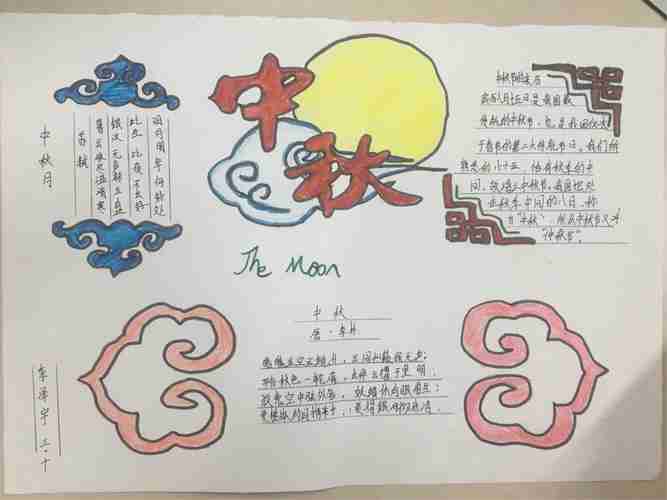 中秋
The Moon
中秋月
苏轼
暮云收尽溢清寒
银汉无声转玉盘
此生此夜不长好
明月明年何处
中秋节的来历
农历八月十五日是我国
传统的中秋节，也是我国仅次
于春节的第二大传统节日。我们所
熟悉的八月十五，恰在秋季的中
间，故谓之中秋节。我国把处
在秋季中间的八月，称
为“中秋”，所以中秋节又叫
“仲秋节”。
中秋
唐·李朴
皓魄当空宝镜升，云间仙籁寂无声；
平分秋色一轮满，长伴云衢千里明；
狡兔空中弦外落，妖蟆休向眼前生；
灵槎拟约同携手，更待银河彻底清。
车泽宇 三·十